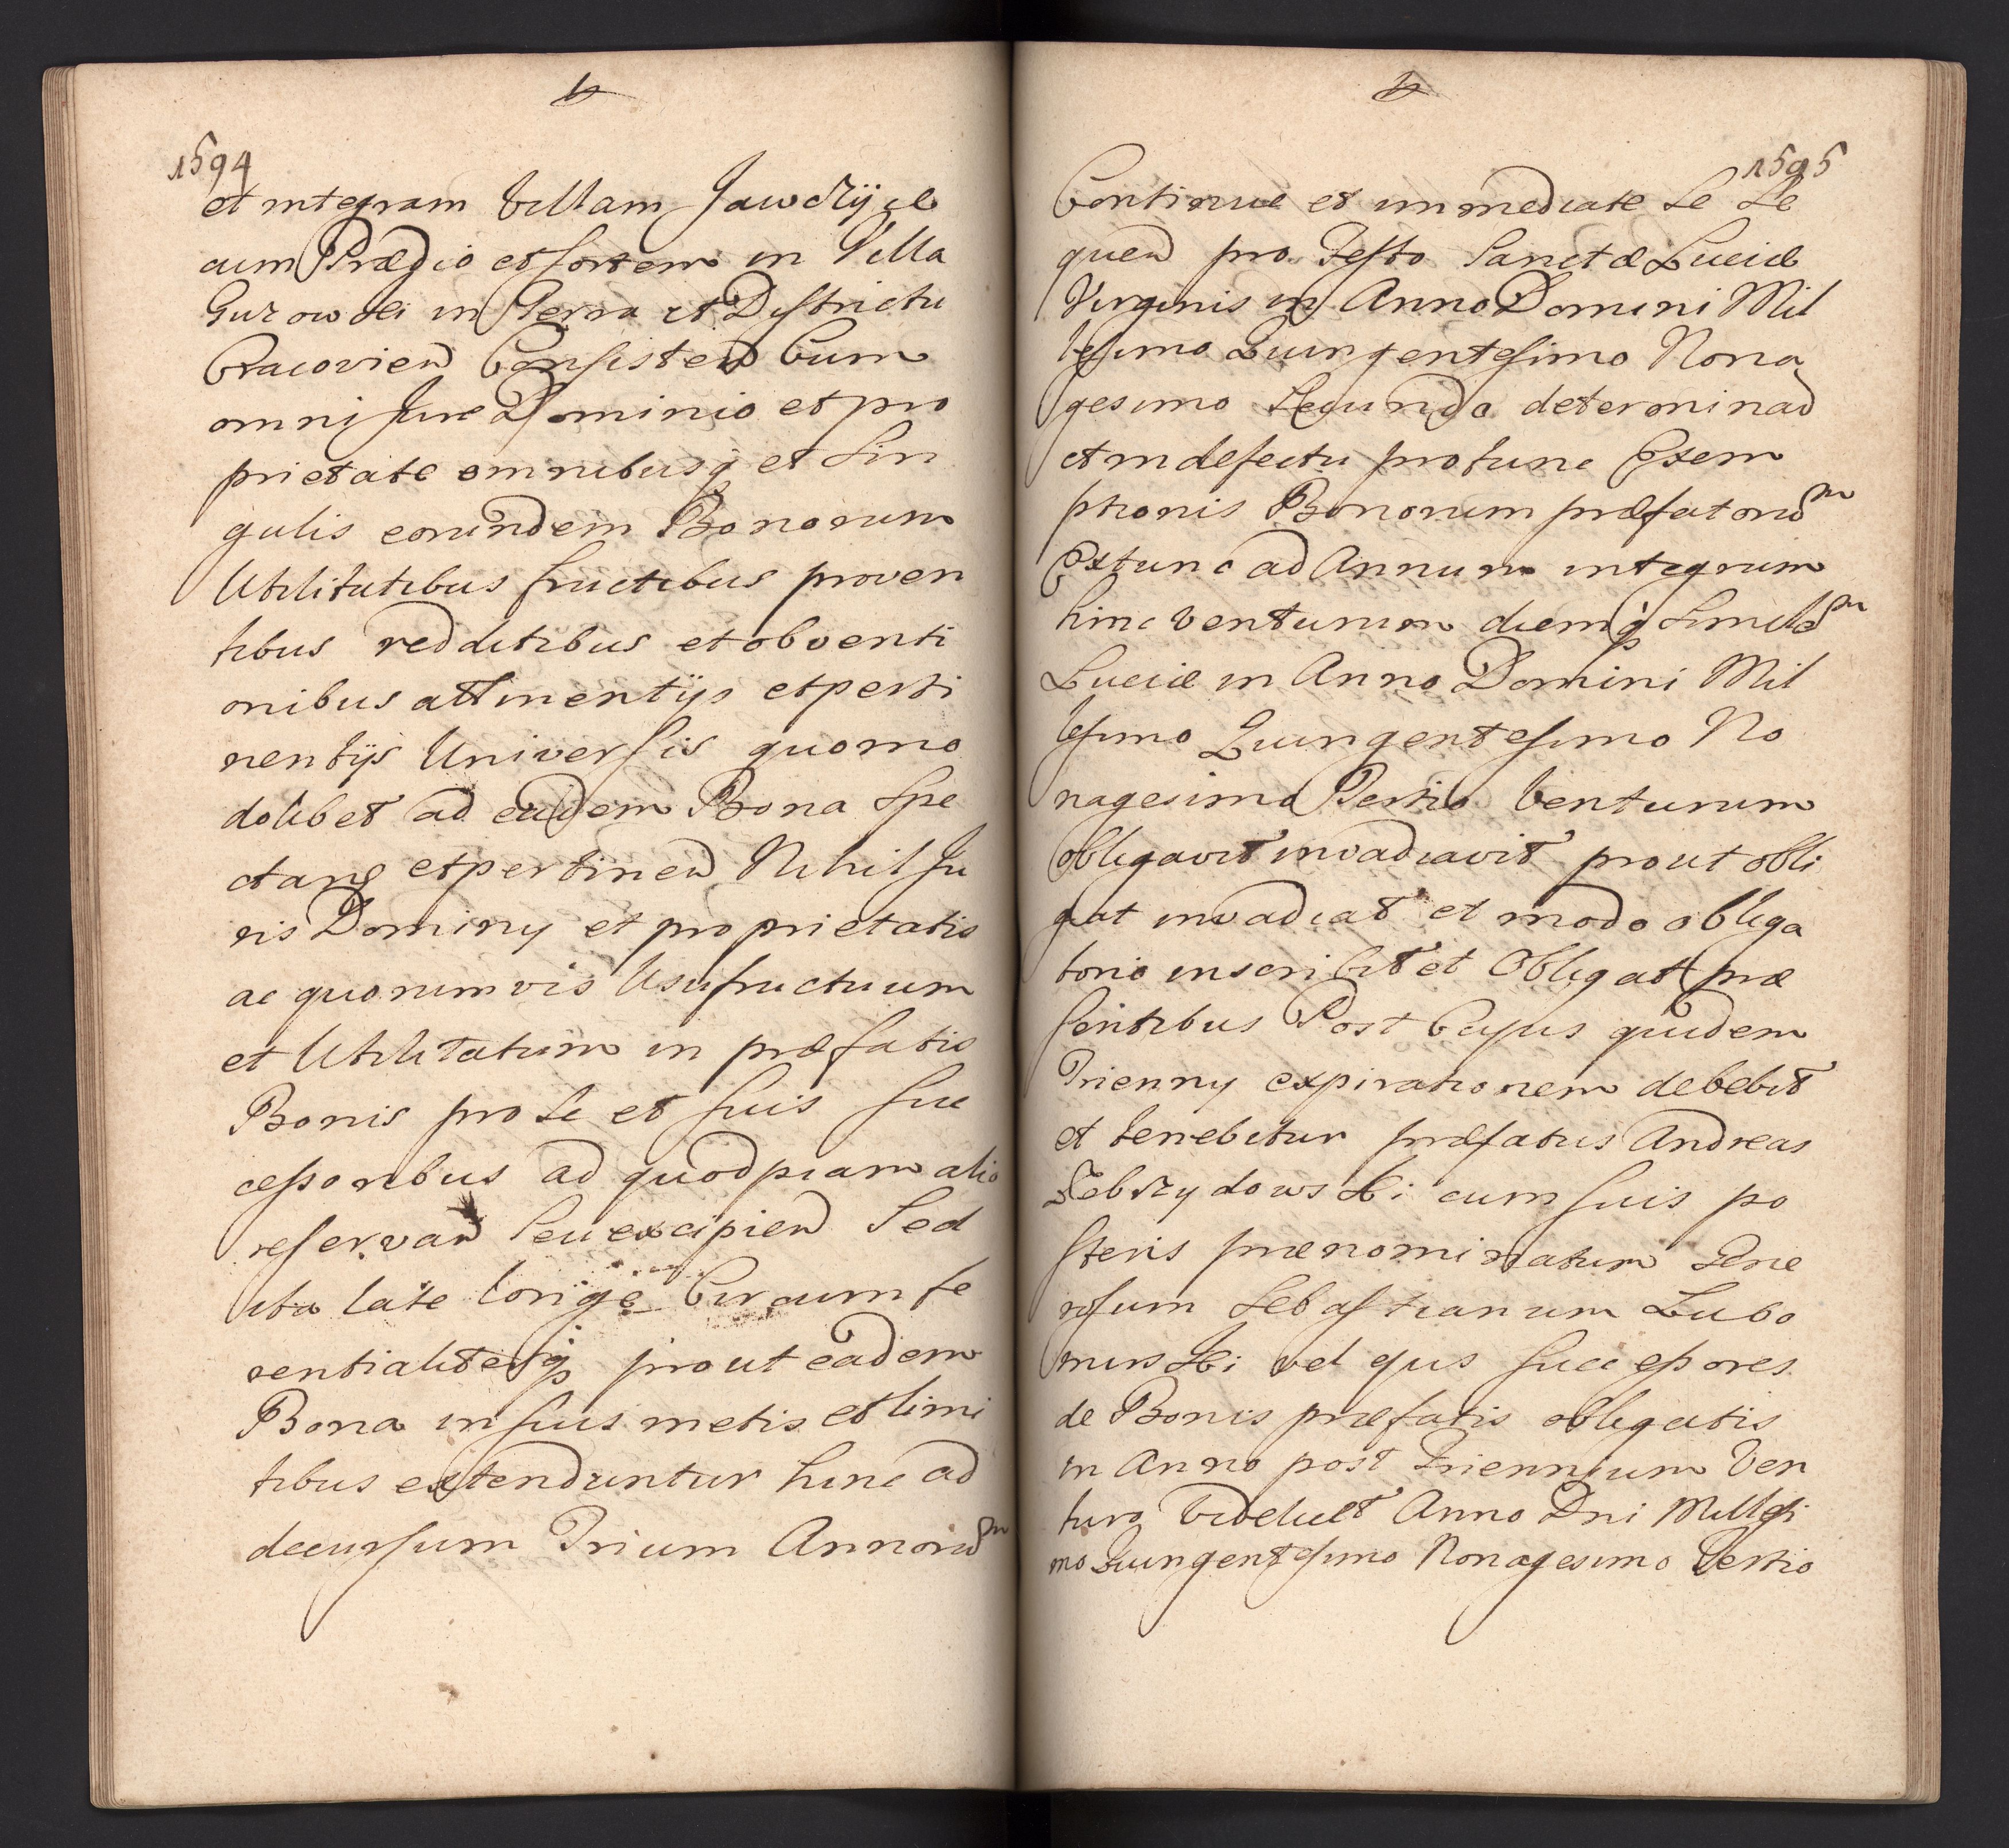 1594
et integram Villam Jawczÿce
cum Prædio et sortem in Villa
Gurowski in Terra et Districtu
Cracovien Consisten Cum
omni Jure Dominio et pro
prietate omnibusq et Sin
gulis eorundem Bonorum
Utilitatibus fructibus proven
tibus redditibus et obventi
onibus attinentÿs et perti
nentÿs Universis quomo
dolibet ad eadem Bona Spe
ctang et pertinen Nihil Ju
ris Dominy et proprietatis
ac quorumvis Usufructuum
et Utilitatum in præfatis
Bonis pro Se et suis suc
cessoribus ad quodpiam alio
reservan Seu excipien Sed
ita late longe Circumfe
rentialiterq prout eadem
Bona in suis metis et limi
tibus extenduntur hinc ad
decursum Trium Annorum
1595
Continue et immediate Se Se
quen pro Festo Sanctæ Luciæ
Virginis in Anno Domini Mil
lesimo Quingentesimo Nona
gesimo Secundo determinad
et in defectu pro tunc Exem
ptionis Bonorum præfatorum
Extunc ad Annum integrum
hinc venturum diemq Similem
Luciæ in Anno Domini Mil
lesimo Quingentesimo No
nagesimo Tertio Venturum
obligavit invadiavit prout obli
gat invadiat et modo obliga
torio inscribit et Obligat præ
sentibus Post Cujus quidem
Trienny expirationem debebit
et tenebitur præfatus Andreas
Zebrzydowski cum suis po
steris prænominatum Gene
rosum Sebastianum Lubo
mirski vel ejus successores
de Bonis præfatis obligatis
in Anno post Triennium Ven
turo Videlicet Anno Dni Millesi
mo Quingentesimo Nonagesimo Tertio